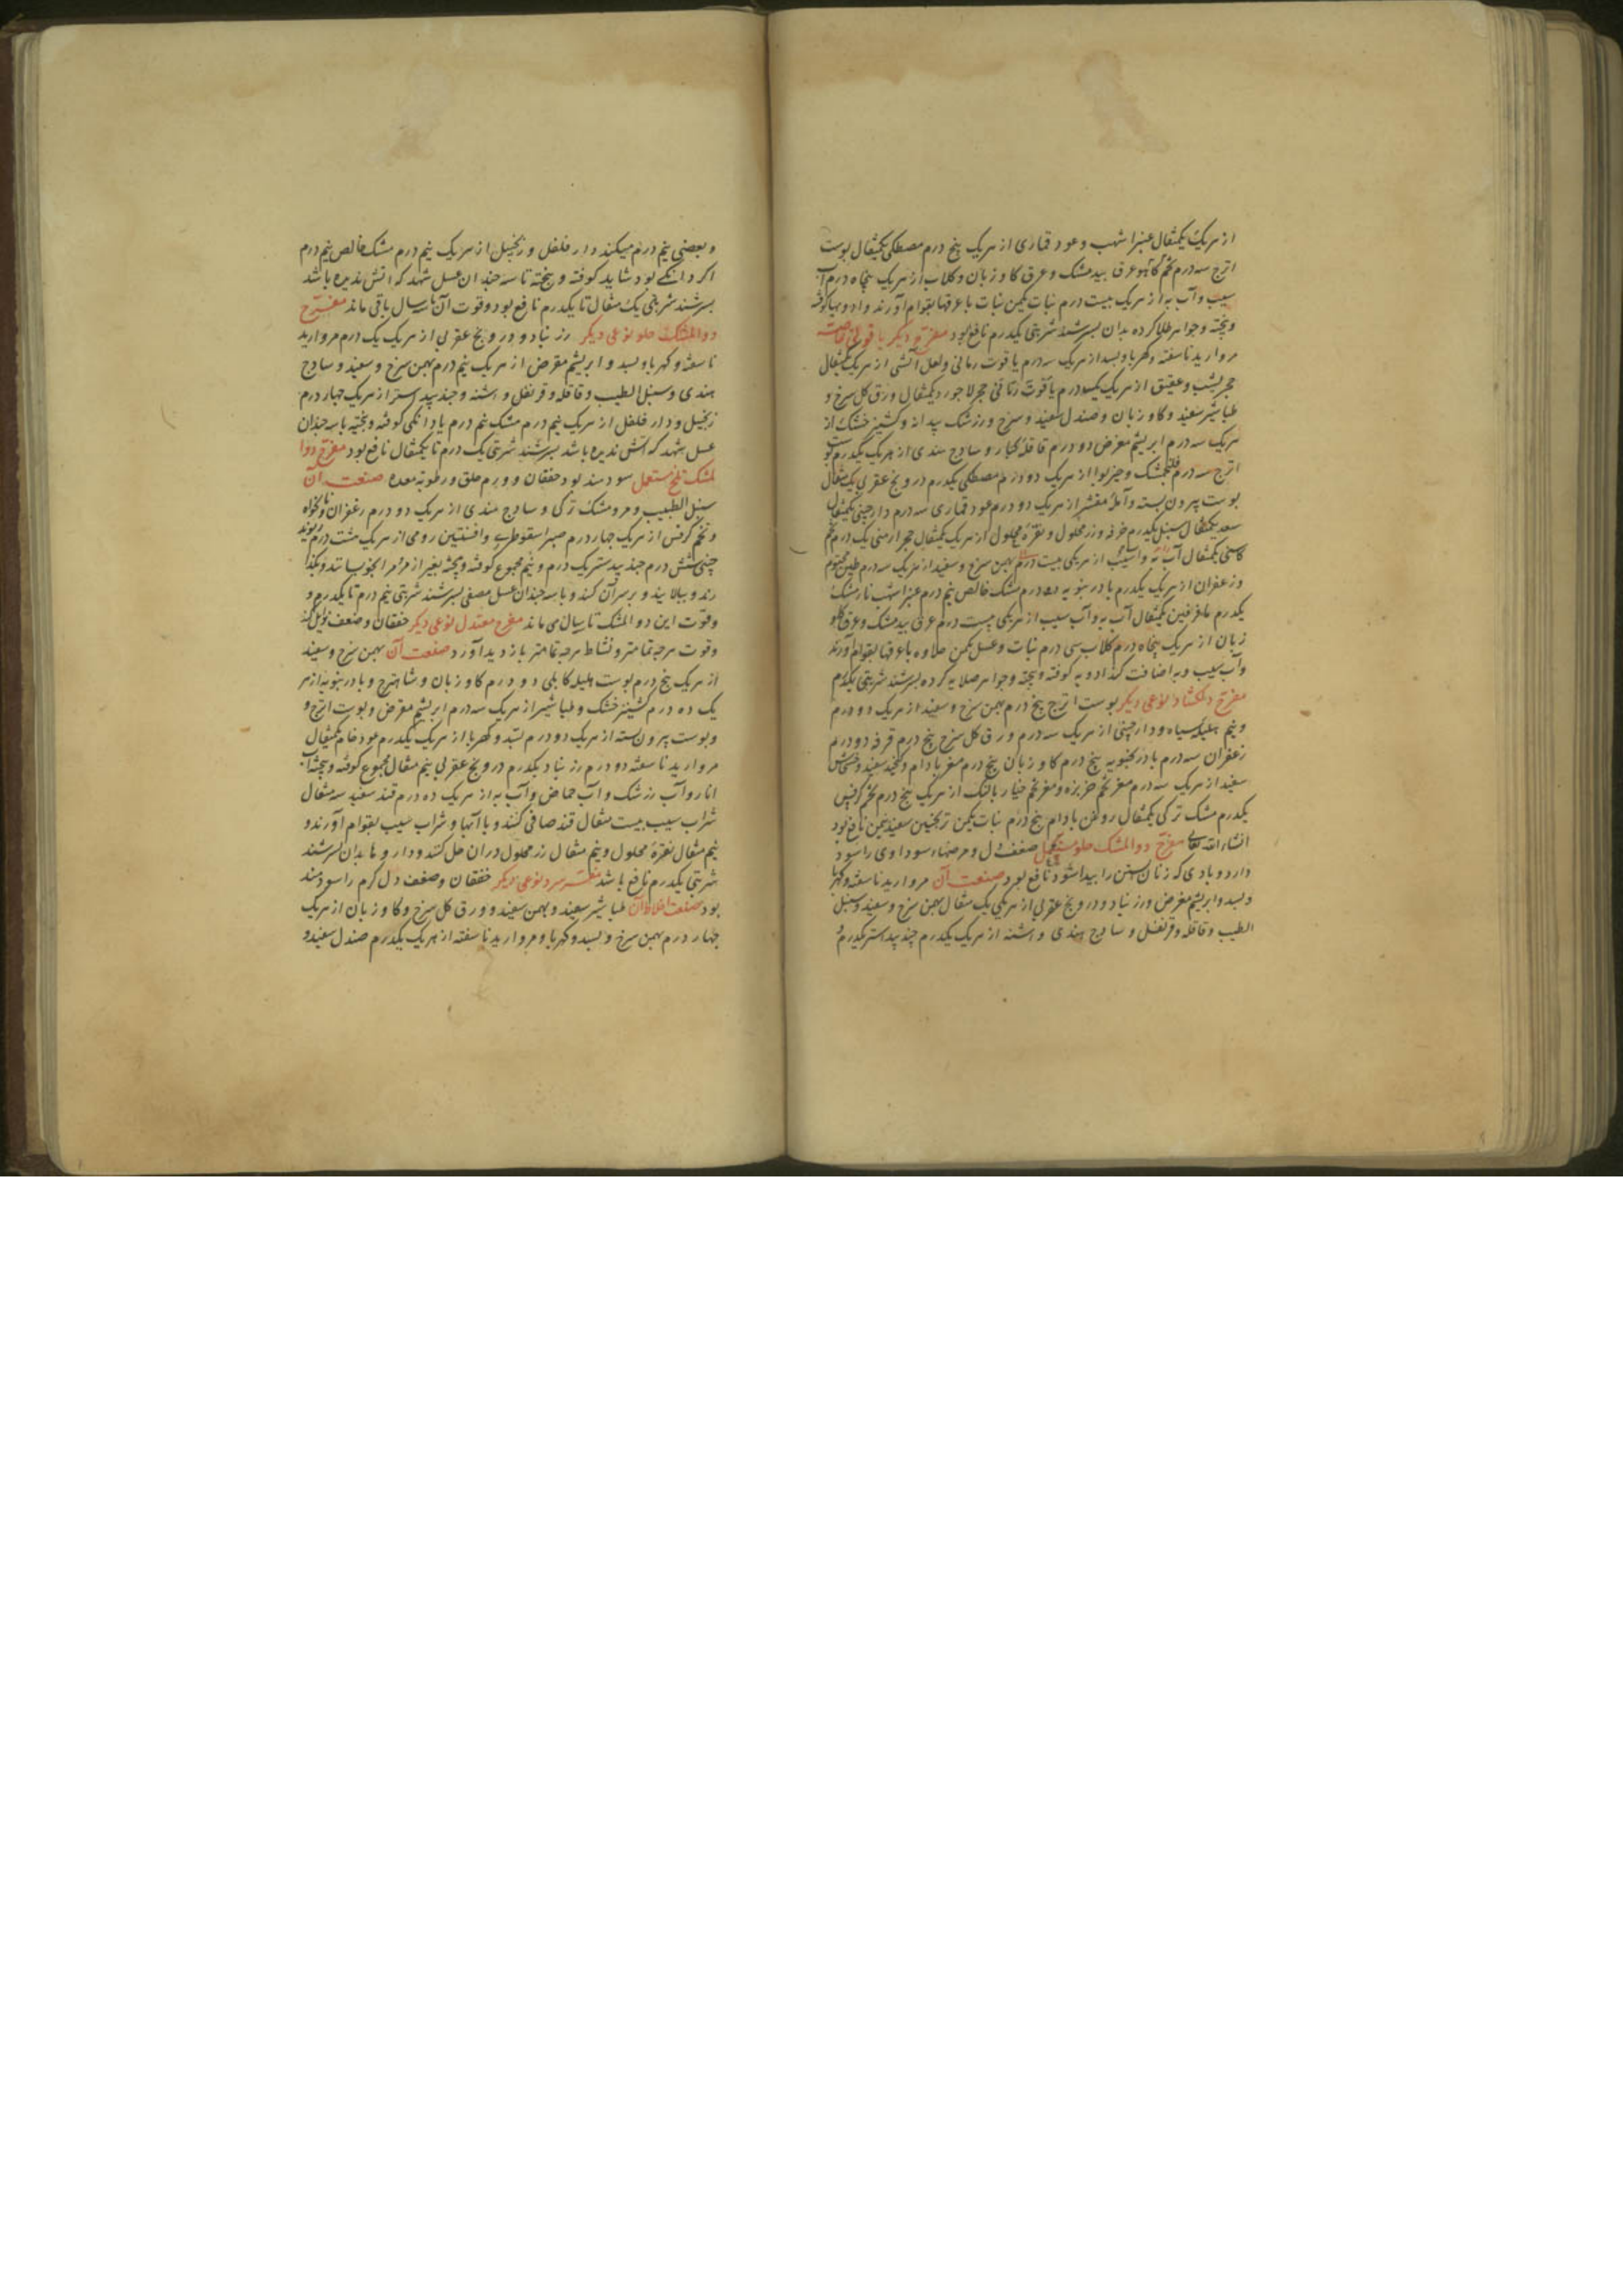 از هریک یکمثقال عنبر اشهب و عود قماری از هریک پنج درم مصطکی یکمثقال پوست
اترج سه درم تخم کاهو عرق بیدمشک و عرق کاوزبان و کلاب از هریک پنجاه درم آب
سیب و آب به از هریک بیست درم نبات یکمن نبات با عرقها بقوام آورند و ادویها کوفته
و پخته و جواهر طلا کرده بدان بسرشند شربتی یکدرم نافع بود مفرح دیکر یاقوتی
مروارید ناسفته و کهربا و بسد از هریک سه درم یاقوت رمانی و لعل آتشی از هریک یکمثقال
حجر یشب و عقیق از هریک یکدرم یاقوت زرقانی حجر لاجورد یکمثقال ورق کل سرخ و
طباشیر سفید و کاوزبان و صندل سفید و سرخ و زرشک بیدانه و کشنیز خشک از
هریک سه درم ابریشم مقرض دو درم قاقله کبار و سادج هندی از هریک یکدرم پوست
اترج سه درم فلنجمشک و جیزبوا از هریک دو درم مصطکی یکدرم درونج عقربی یک مثقال
پوست پیرون پسته و آمله مقشر از هریک دو درم عود قماری سه درم دارچینی یکمثقال
سعد یکمثقال سنبل یکدرم خرفه و زر محلول و نقره محلول از هریک یکمثقال حجر ارمنی یک درم تخم
کاسنی یکمثقال آب به و آب سیب از هریکی بیست درم بهمن سرخ و سفید از هریک سه درم طین مختوم
و زعفران از هریک یکدرم بادرنبویه ده درم مشک خالص نیم درم عنبر اشهب نارمشک
یکدرم یکمثقال آب به و آب سیب از هریکی بیست درم عرق بیدمشک و عرق کاو
زبان از هریک پنجاه درم کلاب سی درم نبات و عسل یکمن حلاوه با عرقها بقوام آورند
و آب سیب و به اضافت کند ادویه کوفته و پخته و جواهر صلایه کرده بسرشند شربتی یکدرم
مفرح دلکشاد نوعی دیکر پوست اترج پنج درم بهمن سرخ و سفید از هریک دو درم
و نیم هلیله سیاه و دارچینی از هریک سه درم ورق کل سرخ پنج درم قرفه دو درم
زعفران سه درم بادرنجبویه پنج درم کاوزبان پنج درم مغز بادام و کنجد سفید و خشخاش
سفید از هریک سه درم مغز تخم خربزه و مغز تخم خیار بالنک از هریک پنج درم تخم کرفس
یکدرم مشک ترکی یکمثقال روغن بادام پنج درم نبات یکمن ترنجبین سفید نیمن نافع بود
انشاءالله تعالی مفرح دوالمشک حلو مستعمل ضعف دل و مرضهاء سوداوی را سود
دارد و بادی که زنان آبستن را پیدا شود نافع بود صنعت آن مروارید ناسفته و کهربا
و بسد و ابریشم مقرض و زرنباد و درونج عقربی از هریکی یک مثقال بهمن سرخ و سفید و سنبل
الطیب و قاقله و قرنفل و سادج هندی و اشنه از هریک یکدرم جندبیدستر یکدرم و
و بعضی نیم درم میکنند دارفلفل و زنجبیل از هریک نیم درم مشک خالص نیم درم
اکر دانکی بود شاید کوفته و پیخته تا سه چندان عسل شهد که آتش ندیده باشد
بسرشند شربتی یک مثقال تا یکدرم نافع بود و قوت آن تا سه سال باقی ماند مفرح
دوالمشک حلو نوعی دیکر زرنباد و درونج عقربی از هریک یک درم مروارید
ناسفته و کهربا و بسد و ابریشم مقرض از هریک نیم درم بهمن سرخ و سفید و سادج
هندی و سنبل الطیب و قاقله و قرنفل و اشنه و جندبیدستر از هریک چهار درم
زنجبیل و دارفلفل از هریک نیم درم مشک نیم درم یا دانکی کوفته و پخته با سه چندان
عسل شهد که آتش ندیده باشد بسرشند شربتی یک درم تا یکمثقال نافع بود مفرح دوا
لمشک تلخ مستعمل سودمند بود خفقان و ورم حلق و رطوبة معده صنعت آن
سنبل الطیب و مر و مشک ترکی و سادج هندی از هریک دو درم زعفران و نانخواه
و تخم کرفس از هریک چهار درم صبر اسقوطری و افسنتین رومی از هریک هشت درم ریوند
چینی شش درم جندبیدستر یک درم و نیم مجموع کوفته و پیخته بغیر از مر مر را بخوبسانند و بکذا
رند و بپالایند و برسر آن کنند و با سه چندان عسل مصفی بسرشند شربتی نیم درم تا یکدرم و
و قوت این دوالمشک تا سالی ماند مفرح معتدل نوعی دیکر خفقان و ضعف زایل کند
و قوت هرچه تمامتر و نشاط هرچه تمامتر بازدید آورد صنعت آن بهمن سرخ و سفید
از هریک پنج درم پوست هلیله کابلی دو درم کاوزبان و شاهترج و بادرنبویه از هر
یک ده درم کشنیز خشک و طباشیر از هریک سه درم ابریشم مقرض و پوست اترج و
و پوست پیرون پسته از هریک دو درم بسد و کهربا از هریک یکدرم عود خام یکمثقال
مروارید ناسفته دو درم زرنباد یکدرم درونج عقربی نیم مثقال مجموع کوفته و پیخته آب
انار و آب زرشک و آب حماض و آب به از هریک ده درم قند سفید سه مثقال
شراب سیب بیست مثقال قند صافی کنند و با آبها و شراب سیب بقوام آورند و
نیم مثقال نقره محلول و نیم مثقال زر محلول دران حل کنند و داروها بدان بسرشند
شربتی یکدرم نافع باشد مفرح سرد نوعی دیکر خفقان و ضعف دل کرم را سودمند
بود صنعت اخلاط آن طباشیر سفید و بهمن سفید و ورق کل سرخ و کاوزبان از هریک
چهار درم بهمن سرخ و بسد و کهربا و مروارید ناسفته از هریک یکدرم صندل سفید و